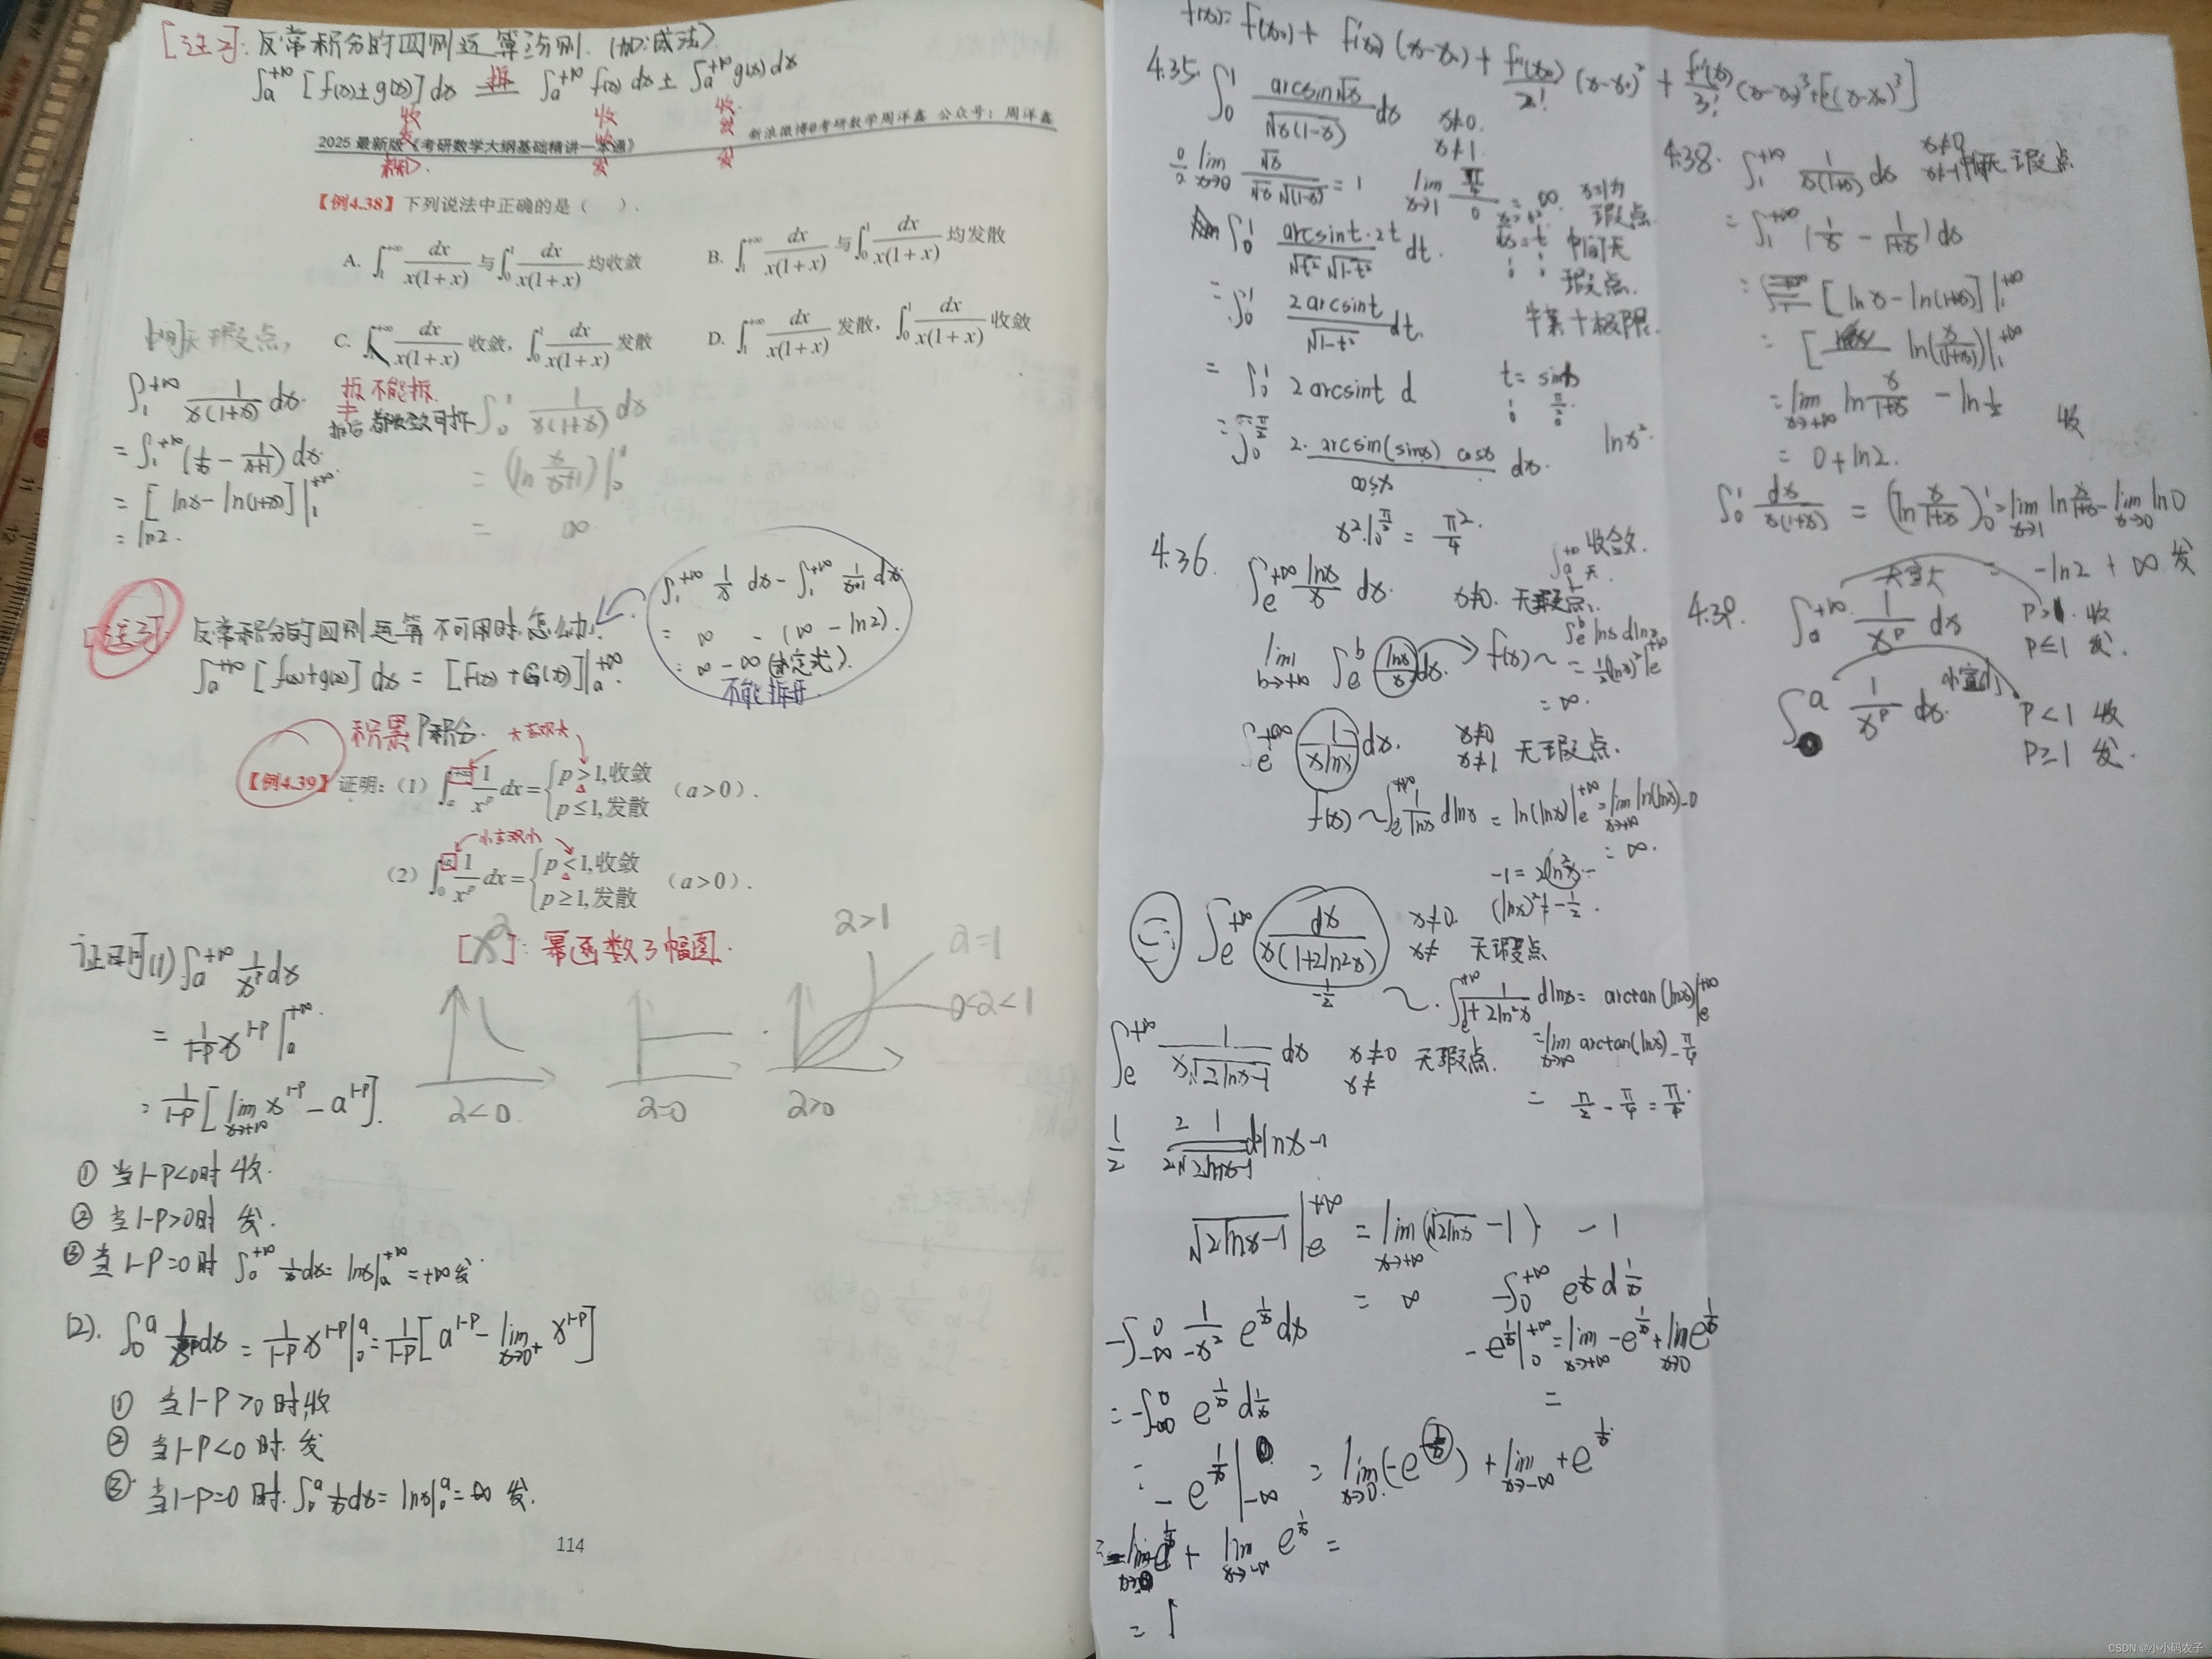 [注2]: 反常积分的四则运算法则. (加.减法)
∫_a^{+∞} [f(x)±g(x)] dx 拆 = ∫_a^{+∞} f(x) dx ± ∫_a^{+∞} g(x) dx
收 收 收
2025 最新版《考研数学大纲基础精讲一本通》 新浪微博@考研数学周洋鑫 公众号：周洋鑫
【例4.38】下列说法中正确的是（ ）.
A. ∫_1^{+∞} dx/(x(1+x)) 与 ∫_0^1 dx/(x(1+x)) 均收敛 B. ∫_1^{+∞} dx/(x(1+x)) 与 ∫_0^1 dx/(x(1+x)) 均发散
中间无瑕点,
C. ∫_1^{+∞} dx/(x(1+x)) 收敛, ∫_0^1 dx/(x(1+x)) 发散 D. ∫_1^{+∞} dx/(x(1+x)) 发散, ∫_0^1 dx/(x(1+x)) 收敛
∫_1^{+∞} 1/(x(1+x)) dx. 不能拆. ∫_0^1 1/(x(1+x)) dx
= ∫_1^{+∞} (1/x - 1/(x+1)) dx. = (ln x/(x+1))|_0^1
= [lnx - ln(1+x)]|_1^{+∞} = ∞
= ln2.
∫_1^{+∞} 1/x dx - ∫_1^{+∞} 1/(x+1) dx.
= ∞ - (∞ - ln2).
= ∞ - ∞ (未定式).
不能拆开.
[注3]: 反常积分的四则运算不可用时,怎么办.
∫_a^{+∞} [f(x)+g(x)] dx = [F(x)+G(x)]|_a^{+∞}.
积累P积分. 大走取大
【例4.39】证明：（1）∫_a^{+∞} 1/x^p dx = { p>1,收敛 p≤1,发散 （a>0）.
（2）∫_0^a 1/x^p dx = { p<1,收敛 p≥1,发散 （a>0）.
证明(1) ∫_a^{+∞} 1/x^p dx
[x^α]: 幂函数3幅图.
α>1 α=1 0<α<1
= 1/(1-p) x^{1-p}|_a^{+∞}.
= 1/(1-p) [lim_{x→+∞} x^{1-p} - a^{1-p}].
α<0 α=0 α>0
① 当1-P<0时 收.
② 当1-P>0时 发.
③ 当1-P=0时 ∫_a^{+∞} 1/x dx = lnx|_a^{+∞} = +∞ 发.
(2). ∫_0^a 1/x^p dx = 1/(1-p) x^{1-p}|_0^a = 1/(1-p) [a^{1-p} - lim_{x→0+} x^{1-p}]
① 当1-P>0时,收
② 当1-P<0时.发
③ 当1-P=0时. ∫_0^a 1/x dx = lnx|_0^a = ∞ 发.
114
f(x)= f(x₀) + f'(x₀)(x-x₀) + f''(x₀)/2! (x-x₀)² + f'''(x₀)/3! (x-x₀)³+[(x-x₀)³]
4.35. ∫_0^1 arcsin√x/√(x(1-x)) dx x≠0. x≠1.
lim_{x→0} √x/(√x √(1-x)) = 1 lim_{x→1} (π/2)/0 = ∞. x=1为瑕点.
∫_0^1 arcsint·2t/(√t² √(1-t²)) dt. 中间无瑕点.
= ∫_0^1 2arcsint/√(1-t²) dt.
= ∫_0^1 2arcsint d t=sinx
= ∫_0^{π/2} 2·arcsin(sinx) cosx/cosx dx. lnx².
x²|_0^{π/2} = π²/4.
4.36. ∫_e^{+∞} lnx/x dx. x≠0. 无瑕点.
lim_{b→+∞} ∫_e^b lnx/x dx. → f(x)~ ∫_e^b lnx dlnx
= 1/2(lnx)²|_e^{+∞}
= ∞.
∫_e^{+∞} 1/(xlnx) dx. x≠0 x≠1 无瑕点.
f(x)~ ∫_e^{+∞} 1/lnx dlnx = ln(lnx)|_e^{+∞} = lim_{x→+∞} ln(lnx)-0
= ∞.
-1 = 2(ln²x)
(lnx)² ≠ -1/2.
∫_e^{+∞} dx/(x(1+2ln²x)) x≠0 x≠ 无瑕点
~. ∫_e^{+∞} 1/(1+2ln²x) dlnx = arctan(lnx)|_e^{+∞}
= lim_{x→+∞} arctan(lnx) - π/4
= π/2 - π/4 = π/4.
∫_e^{+∞} 1/(x√(2lnx-1)) dx x≠0 x≠ 无瑕点.
1/2 2 1/(2√(2lnx-1)) d2lnx-1
√(2lnx-1)|_e^{+∞} = lim_{x→+∞}(√2lnx -1) - 1
= ∞
-∫_{-∞}^0 1/(-x²) e^{1/x} dx -∫_0^{+∞} e^{1/x} d1/x
= -∫_{-∞}^0 e^{1/x} d1/x -e^{1/x}|_0^{+∞} = lim_{x→+∞} -e^{1/x} + lim_{x→0} e^{1/x}
=
= -e^{1/x}|_{-∞}^0 = lim_{x→0}(-e^{1/x}) + lim_{x→-∞} +e^{1/x}
= -lim e^{1/x} + lim_{x→-∞} e^{1/x} =
= 1
4.38. ∫_1^{+∞} 1/(x(1+x)) dx x≠0 x≠-1 中间无瑕点.
= ∫_1^{+∞} (1/x - 1/(1+x)) dx
= [lnx - ln(1+x)]|_1^{+∞}
= [ln(x/(1+x))]|_1^{+∞}
= lim_{x→+∞} ln x/(1+x) - ln 1/2 收
= 0+ln2.
∫_0^1 dx/(x(1+x)) = (ln x/(1+x))_0^1 = lim_{x→1} ln x/(1+x) - lim_{x→0} ln0
= -ln2 + ∞ 发
4.39. ∫_a^{+∞} 1/x^p dx P>1. 收
P≤1 发.
∫_0^a 1/x^p dx. P<1 收
P≥1 发.
CSDN @小小码农子